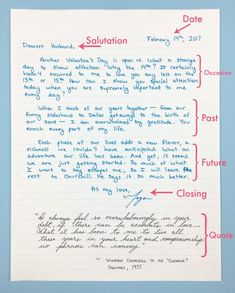 Date
February 14th, 2017
Salutation
Dearest Husband,
Another Valentine's Day is upon us. What a strange
day to show affection. Why the 14th? It certainly
hasn't occurred to me to love you any less on the
13th or 15th. How can I show you special attention
today when you are supremely important to me
every day?
Occasion
When I think of our years together — from our
funny sideshows to Dallas getaways to the birth of
our son — I am overwhelmed by gratitude. You
enrich every part of my life.
Past
Each phase of our lives adds a new flavor, a
richness we couldn't have anticipated. What an
adventure our life has been. And yet, it seems
we are just getting started. So much of what
I want to say escapes me. So I will leave the
rest to Churchill. He says it so much better.
Future
All my love,
Closing
"I always feel so overwhelmingly in your
debt, if there can be accounts in love...
What it has been to me to live all
these years in your heart and companionship
no phrases can convey."
Quote
— Winston Churchill to his "Clemmie"
January, 1935